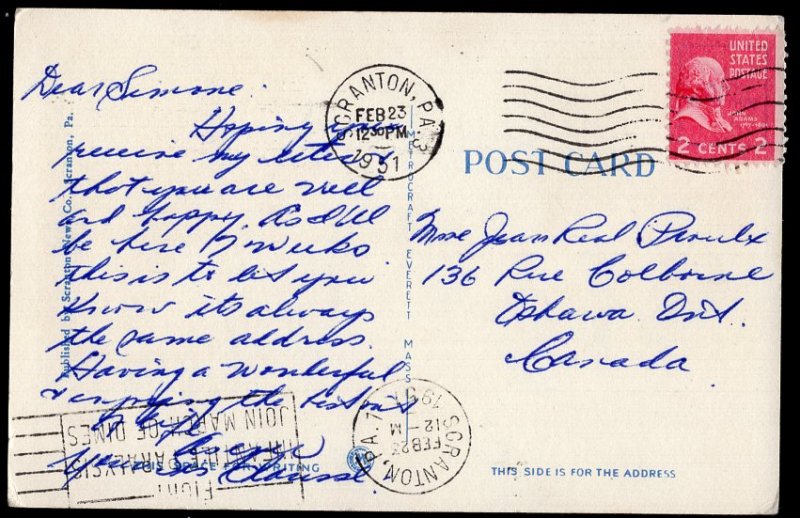 Dear Simone:
Hoping you
receive my letter &
that you are well
and happy. As I'll
be here 7 weeks
this is to let you
know its always
the same address.
Having a wonderful
& enjoying the
life
Published by Scranton News Co., Scranton, Pa.
SCRANTON, PA. 3
FEB 23
12 30 PM
1951
METROCRAFT EVERETT MASS
POST CARD
UNITED
STATES
POSTAGE
JOHN
ADAMS
2 CENTS 2
Mme Jean Real Proulx
136 Rue Colborne
Oshawa Ont.
Canada
SCRANTON, PA.
FEB 23
12 M
1951
FIGHT
INFANTILE PARALYSIS
JOIN MARCH OF DIMES
THIS SPACE FOR WRITING
THIS SIDE IS FOR THE ADDRESS